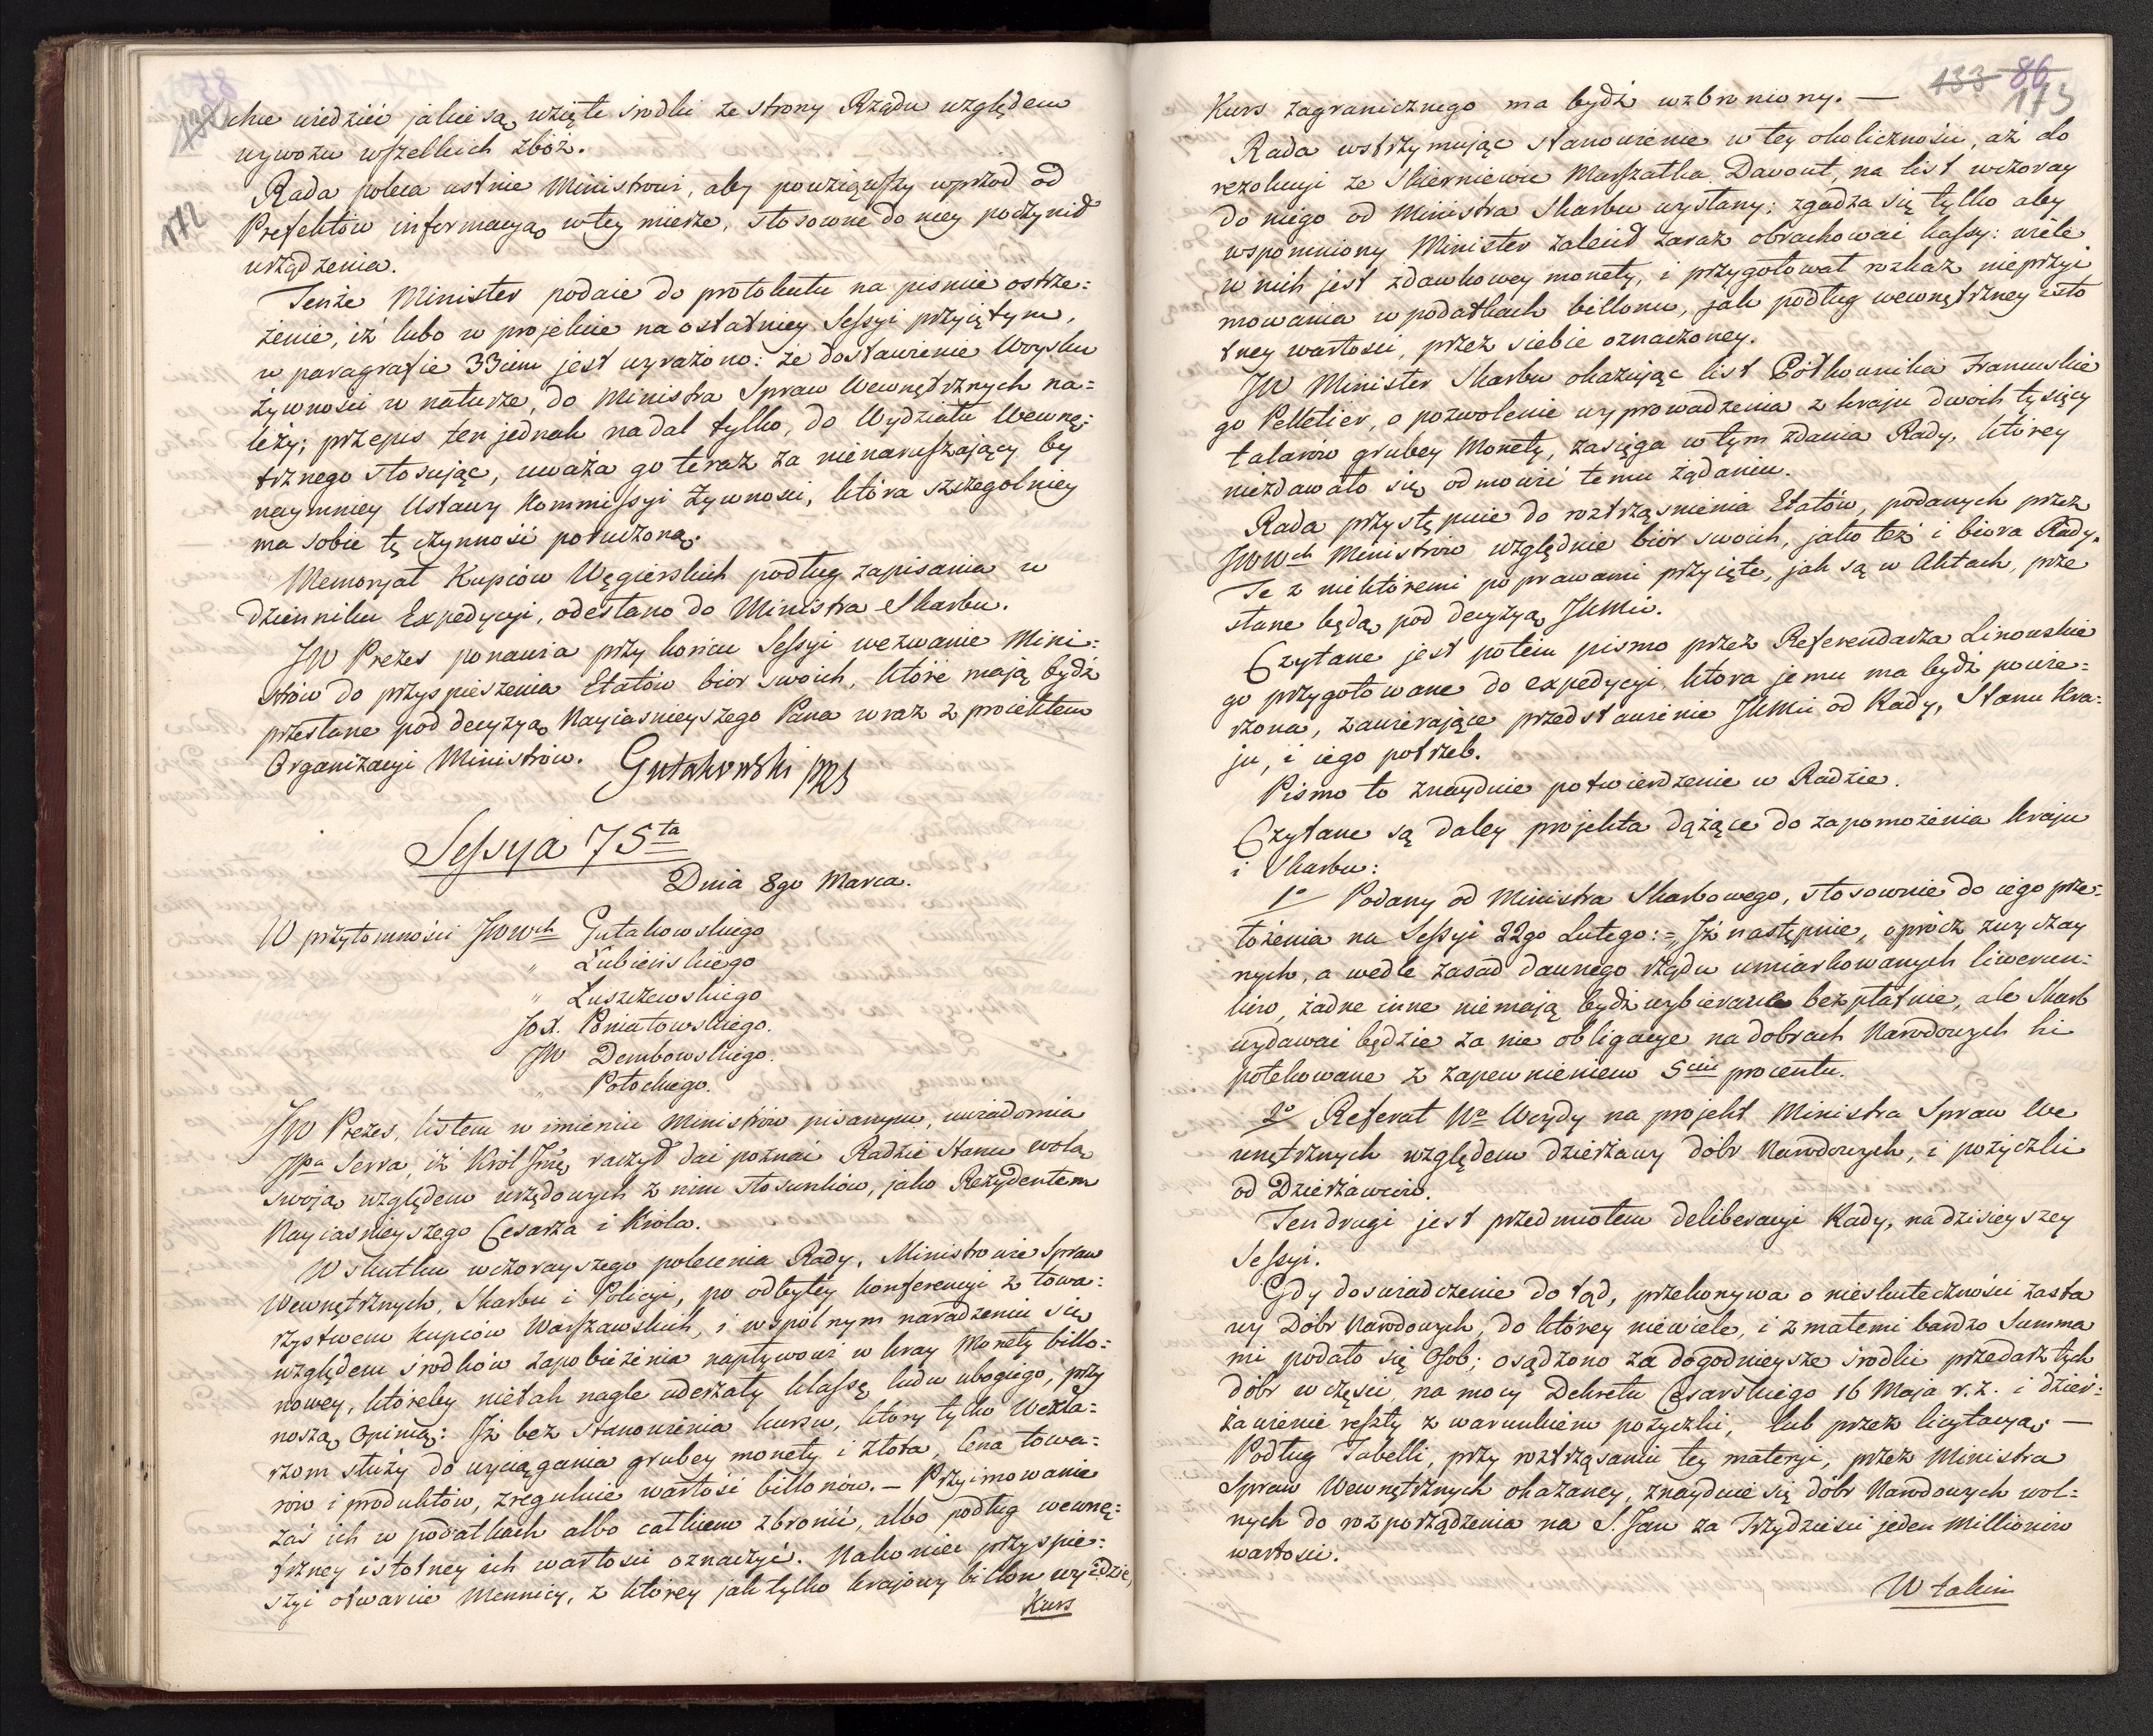 132
172
chce wiedzieć jakie są wzięte srodki ze strony Rządu względem
wywozu wszelkich zbóż.
Rada poleca ustnie Ministrowi, aby powziąwszy wprzod od
Prefektow informacyą w tey mierze, stosowne do niey poczynił
urządzenia.
Tenże Minister podaie do protokułu na pismie ostrze=
żenie, iż lubo w projekcie na ostatniey Sessyi przyiętym,
w paragrafie 33cim jest wyrażono: że dostawienie Woysku
żywności w naturze, do Ministra Spraw Wewnętrznych na=
leży; przepis ten jednak nadal tylko, do Wydziału Wewnę=
trznego stosując, uważa go teraz za nienaruszający by
naymniey Ustawy Kommissyi Żywności, która szczegolniey
ma sobie tę czynność poruczoną.
Memoryał Kupców Węgierskich podług zapisania w
dzienniku Expedycyi, odesłano do Ministra Skarbu.
JW Prezes ponawia przy końcu Sessyi wezwanie Mini=
strów do przyspieszenia Etatów biór swoich, które mają bydź
przesłane pod decyzyą Nayiasnieyszego Pana wraz z proiektem
Organizacyi Ministrów. Gutakowski prs
Sessya 75ta
Dnia 8go Marca.
W przytomności JWWch Gutakowskiego
" Łubieńskiego
" Łuszczewskiego
JOX. Poniatowskiego.
JW Dembowskiego.
" Potockiego.
JW Prezes, listem w imieniu Ministrów pisanym, uwiadomia
JPa Serra, iż Król Jmć raczył dać poznać Radzie Stanu wolą
swoją względem urzędowych z nim stosunków, jako Rezydentem
Nayiasnieyszego Cesarza i Króla.
W skutku wczorayszego polecenia Rady, Ministrowie Spraw
Wewnętrznych, Skarbu i Policyi, po odbytey konferencyi z towa=
rzystwem kupców Warszawskich, i wspólnym naradzeniu się
względem środków zapobieżenia napływowi w kray Monety billo=
nowey, któreby nietak nagle uderzały klassę ludu ubogiego, przy
noszą Opinią: Iż bez stanowienia kursu, który tylko Wexla=
rzom służy do wyciągania grubey monety i złota, Cena towa=
rów i produktów, zreguluie wartość billonów. – Przyimowanie
zaś ich w podatkach albo całkiem zbronić, albo podług wewnę=
trzney istotney ich wartości oznaczyć. Nakoniec przyspie=
szyć otwarcie Mennicy, z którey jak tylko krajowy billon wyidzie,
Kurs
133 86
173
Kurs zagranicznego ma bydź wzbroniony. —
Rada wstrzymując stanowienie w tey okoliczności, aż do
rezolucyi ze Skierniewic Marszałka Davout, na list wczoray
do niego od Ministra Skarbu wysłany; zgadza się tylko aby
wspomniony Minister zalecił zaraz obrachować kassy: wiele
w nich jest zdawkowey monety, i przygotował rozkaz nieprzyi
mowania w podatkach billonu, jak podług wewnętrzney isto
tney wartości, przez siebie oznaczoney.
JW Minister Skarbu okazując list Półkownika Francuskie
go Pelletier, o pozwolenie wyprowadzenia z kraju dwoch tysięcy
talarów grubey Monety, zasięga w tym zdania Rady, którey
niezdawało się odmówić temu żądaniu.
Rada przystępuie do roztrząsnienia Etatów, podanych przez
JWWch Ministrów względnie biór swoich, jako też i biora Rady.
Te z niektóremi poprawami przyięte, jak są w Aktach, prze
słane będą pod decyzyą JKMci.
Czytane jest potem pismo przez Referendarza Linowskie
go przygotowane do expedycyi, która jemu ma bydź powie=
rzona, zawieraiące przedstawienie JKMci od Rady, Stanu Kra=
ju, i iego potrzeb.
Pismo to znayduie potwierdzenie w Radzie.
Czytane są daley projekta dążące do zapomożenia kraju
i Skarbu:
1o Podany od Ministra Skarbowego, stosownie do iego prze=
łożenia na Sessyi 22go Lutego: = „Iż następnie, oprócz zwyczay
nych, a wedle zasad dawnego rządu umiarkowanych liwerun=
ków, żadne inne niemają bydź wybierane bezpłatnie, ale Skarb
wydawać będzie za nie obligacye na dobrach Narodowych hi
potekowane z zapewnieniem 5ciu procentu.
2o Referat Wo Woydy na projekt Ministra Spraw We
wnętrznych względem dzierżawy dóbr Narodowych, i pożyczki
od Dzierżawców.
Ten drugi jest przedmiotem deliberacyi Rady, na dzisieyszey
Sessyi.
Gdy doswiadczenie dotąd, przekonywa o nieskuteczności zasta
wy Dóbr Narodowych, do którey niewiele, i z małemi bardzo Summa
mi podało się Osob; osądzono za dogodnieysze środki przedaż tych
dóbr w częsci, na mocy Dekretu Cesarskiego 16 Maja r.z. i dzier=
żawienie reszty z warunkiem pożyczki, lub przez licytacyą. —
Podług Tabelli, przy roztrząsaniu tey materyi, przez Ministra
Spraw Wewnętrznych okazaney, znayduie się dóbr Narodowych wol=
nych do rozporządzenia na S. Jan za Trzydzieści jeden Millionów
wartości.
W takim